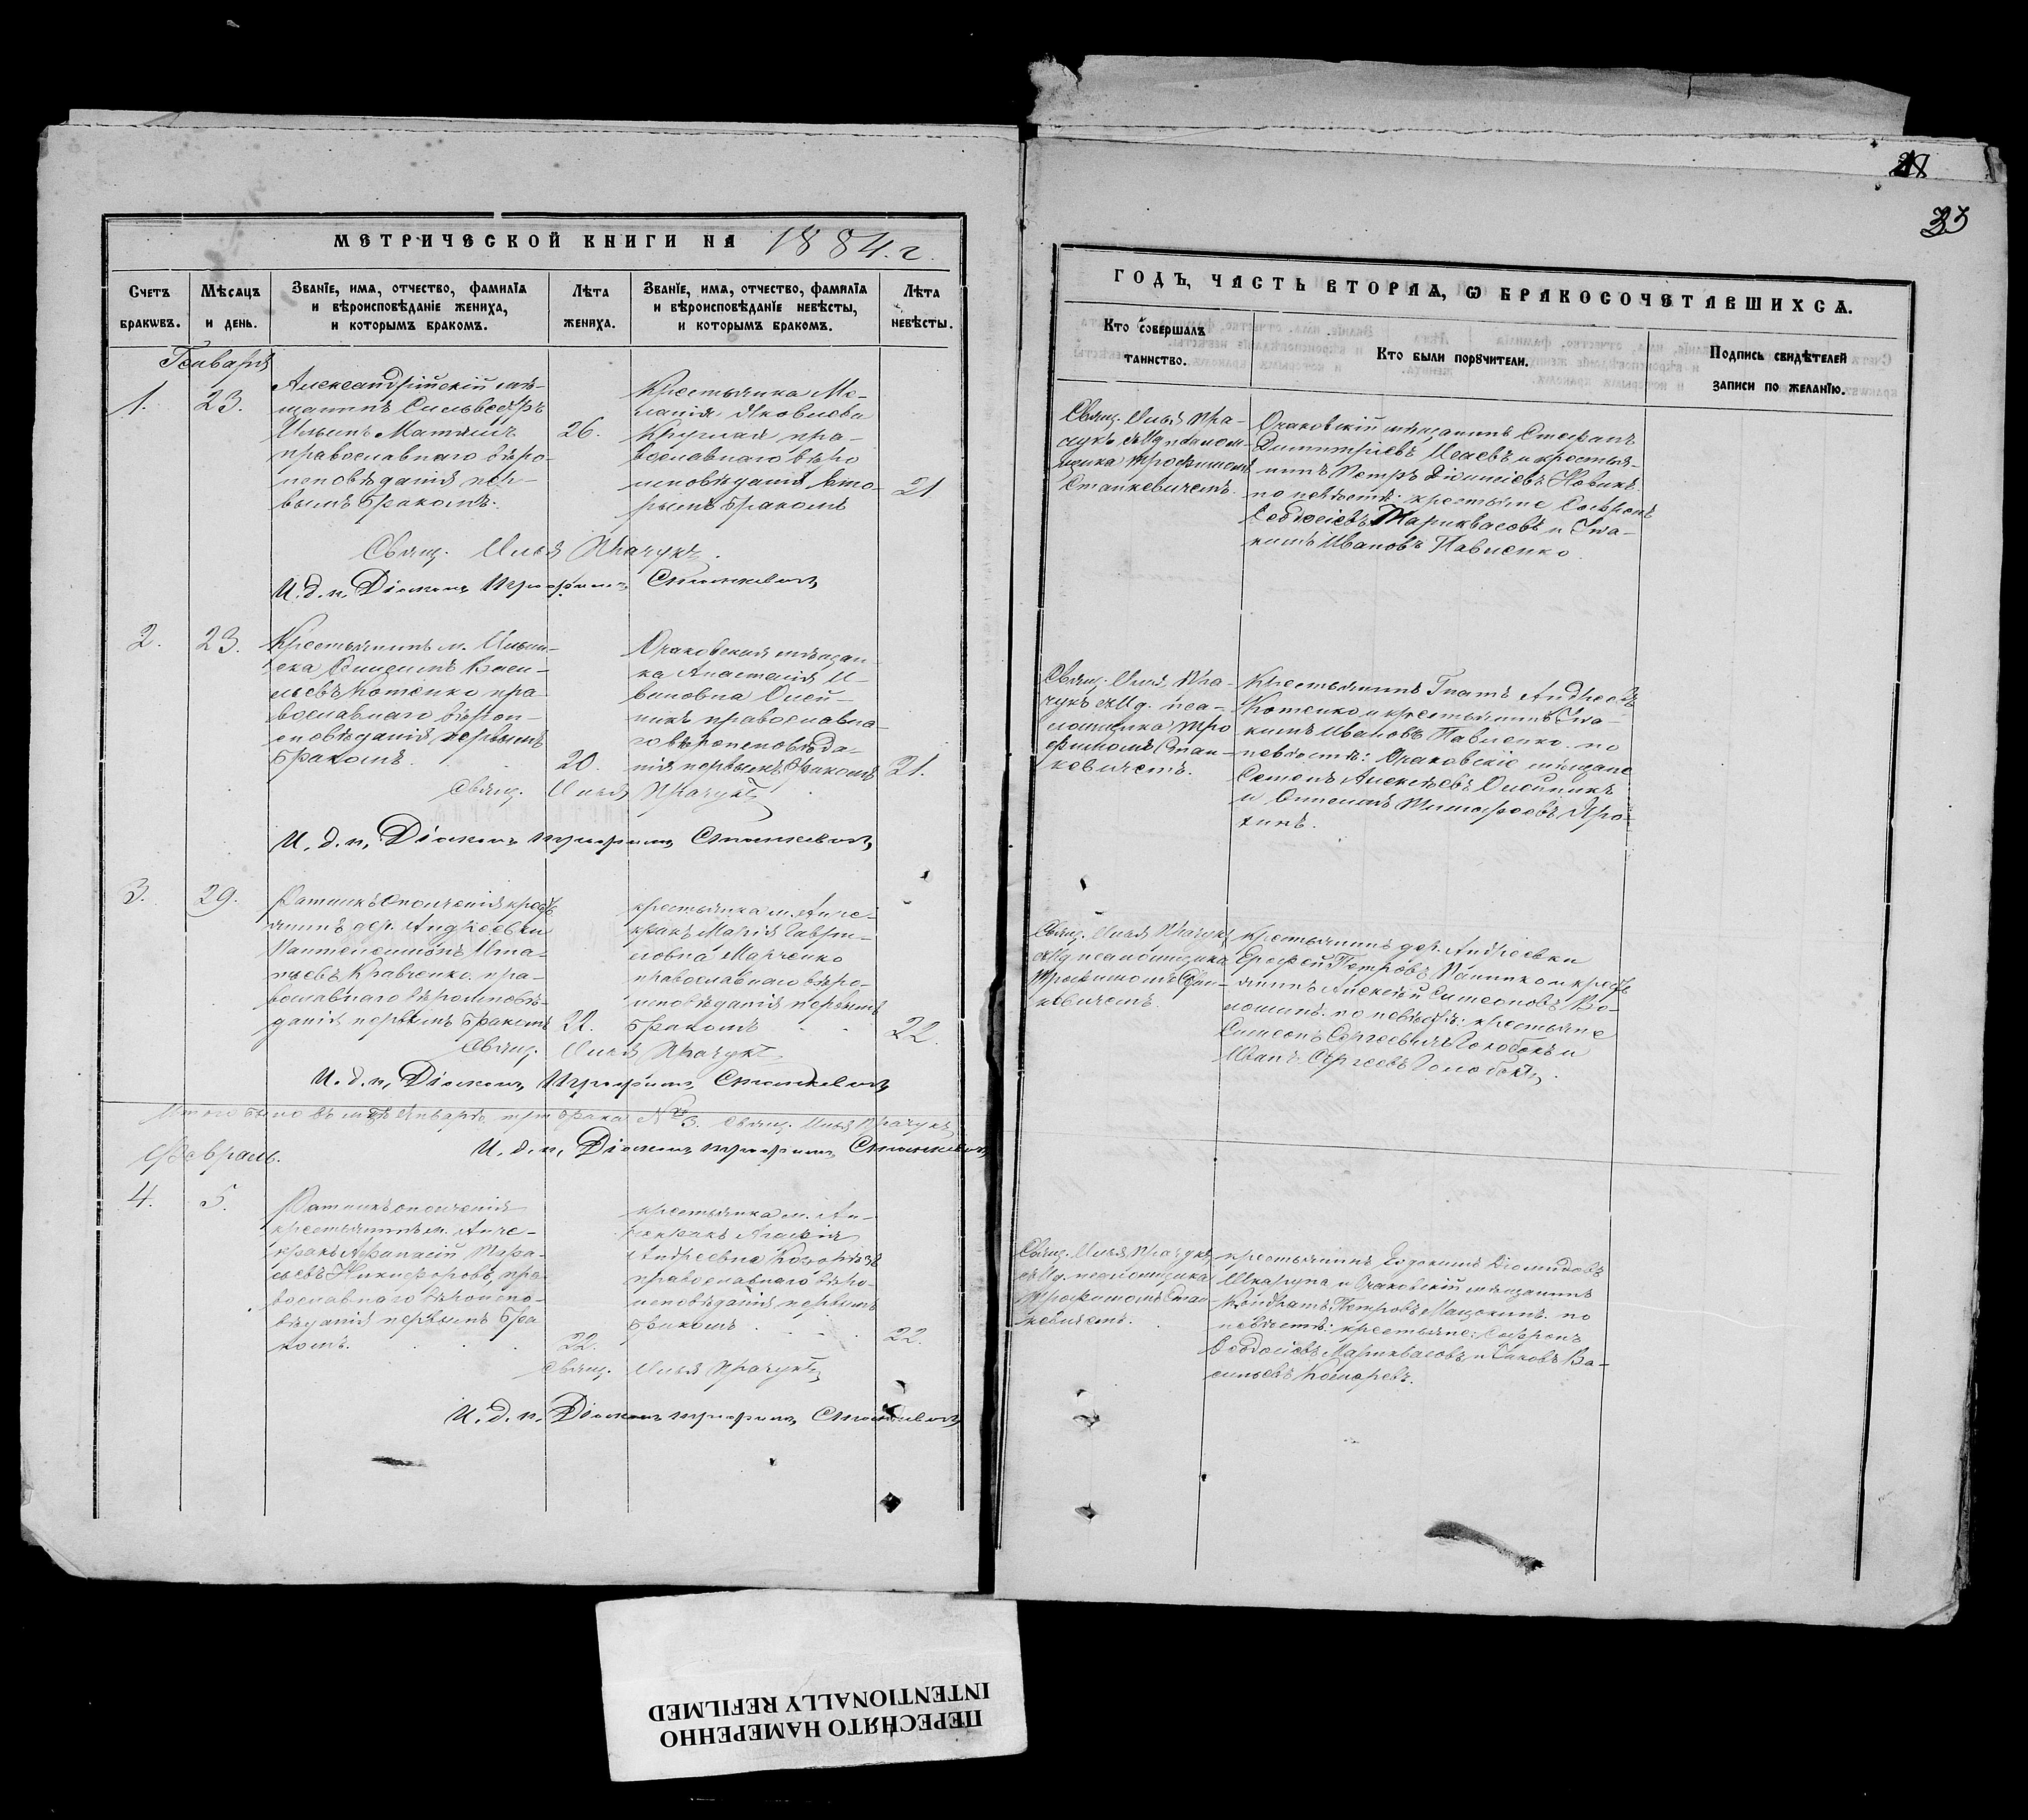 28
33
МЕТРИЧЕСКОЙ КНИГИ НА 1884.г.
Счетъ браковъ.
Мѣсяцъ и день.
Званіе, имя, отчество, фамилія
и вѣроисповѣданіе жениха,
и которымъ бракомъ.
Лѣта
жениха.
Званіе, имя, отчество, фамилія
и вѣроисповѣданіе невѣсты,
и которымъ бракомъ.
Лѣта
невѣсты.
Генваря
1.
23.
Александрійскій мѣ-
щанинъ Сильвестръ
Ильинъ Матяшъ
православнаго вѣро-
исповѣданія пер-
вымъ бракомъ.
26.
Крестьянка Ме-
ланія Яковлева
Круглая пра-
вославнаго вѣро
исповѣданія вто-
рымъ бракомъ
21
Свящ. Илья Ткачукъ.
И. д. п. Діаконъ Трофимъ Станкевичъ
2.
23.
Крестьянинъ м. Ильин-
ска Онисимъ Васи-
льевъ Котенко пра
вославнаго вѣрои-
сповѣданія первымъ
бракомъ.
20.
Очаковская мѣщан-
ка Анастасія И-
вановна Олей-
никъ православна-
го вѣроисповѣда-
нія первымъ бракомъ
21.
Свящ. Илья Ткачукъ
И. д. п. Діаконъ Трофимъ Станкевичъ
3.
29.
Ратникъ ополченія крест
янинъ дер. Андреевки
Пантелеимонъ Игна-
тьевъ Кравченко. пра-
вославнаго вѣроисповѣ-
данія первымъ бракомъ
22.
крестьянка м. Анче-
кракъ Марія Гаври-
ловна Марченко
православнаго вѣро-
исповѣданія первымъ
бракомъ
22.
Свящ. Илья Ткачукъ
И. д. п. Діаконъ Трофимъ Станкевичъ
Итого было въ м-цѣ Январѣ три брака № 3. Свящ. Илья Ткачукъ
И. д. п. Діаконъ Трофимъ Станкевичъ
Февраль.
4.
5.
Ратникъ ополченія
крестьянинъ м. Анче-
кракъ Афанасій
Никифоровъ, пра
вославнаго вѣроиспо-
вѣданія первымъ бра
комъ.
22.
крестьянка м. Ан-
чекракъ
Андреевна
православнаго вѣро-
исповѣданія первымъ
бракомъ
22.
Свящ. Илья Ткачукъ
И. д. п. Діаконъ Трофимъ Станкевичъ
ГОДЪ, ЧАСТЬ ВТОРАЯ, Ѡ БРАКОСОЧЕТАВШИХСЯ.
Кто совершалъ
таинство.
Кто были поручители.
Подпись свидѣтелей
записи по желанію.
Свящ. Илья Тка-
чукъ съ Ид псалом-
щика Трофимомъ
Станкевичемъ.
Очаковскій мѣщанинъ Стефанъ
Димитріевъ Исаевъ и крестья-
нинъ Петръ Діонисіевъ Новикъ.
по невѣстѣ: крестьяне Софронъ
Ѳеодосіевъ Мариквасовъ и Іоа-
кимъ Ивановъ Павленко.
Свящ. Илья Тка-
чукъ съ Ид. пса-
ломщика Тро
фимомъ Стан-
кевичемъ.
Крестьянинъ Игнатъ Андреевъ
Котенко и крестьянинъ Іоа-
кимъ Ивановъ Павленко. по
невѣстѣ: Очаковскіе мѣщане
Семенъ Алексѣевъ Олейникъ
и Тимофеевъ Яро-
хинъ.
Свящ. Илья Ткачукъ
съ Ид. псаломщика
Трофимомъ Стан-
кевичемъ.
крестьянинъ дер. Андреевки
Ерофей Петровъ и крест
янинъ Алексѣй Симеоновъ Во-
лошинъ. по невѣстѣ: крестьяне
Симеонъ Сергеевичъ Голобокъ и
Иванъ Сергеевъ Голобокъ.
Свящ. Илья Ткачукъ
съ Ид. псаломщика
Трофимомъ Стан-
кевичемъ.
крестьянинъ Евдокимъ Діомидовъ
Шкарупа и Очаковскій мѣщанинъ
Кондратъ Петровъ по
невѣстѣ: крестьяне: Софронъ
Ѳеодосіевъ Мариквасовъ и Іаковъ Ва-
сильевъ
ПЕРЕСНЯТО НАМЕРЕННО
INTENTIONALLY REFILMED